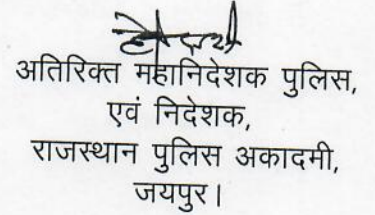 अतिरिक्त महानिदेशक पुलिस,
एवं निदेशक,
राजस्थान पुलिस अकादमी,
जयपुर।